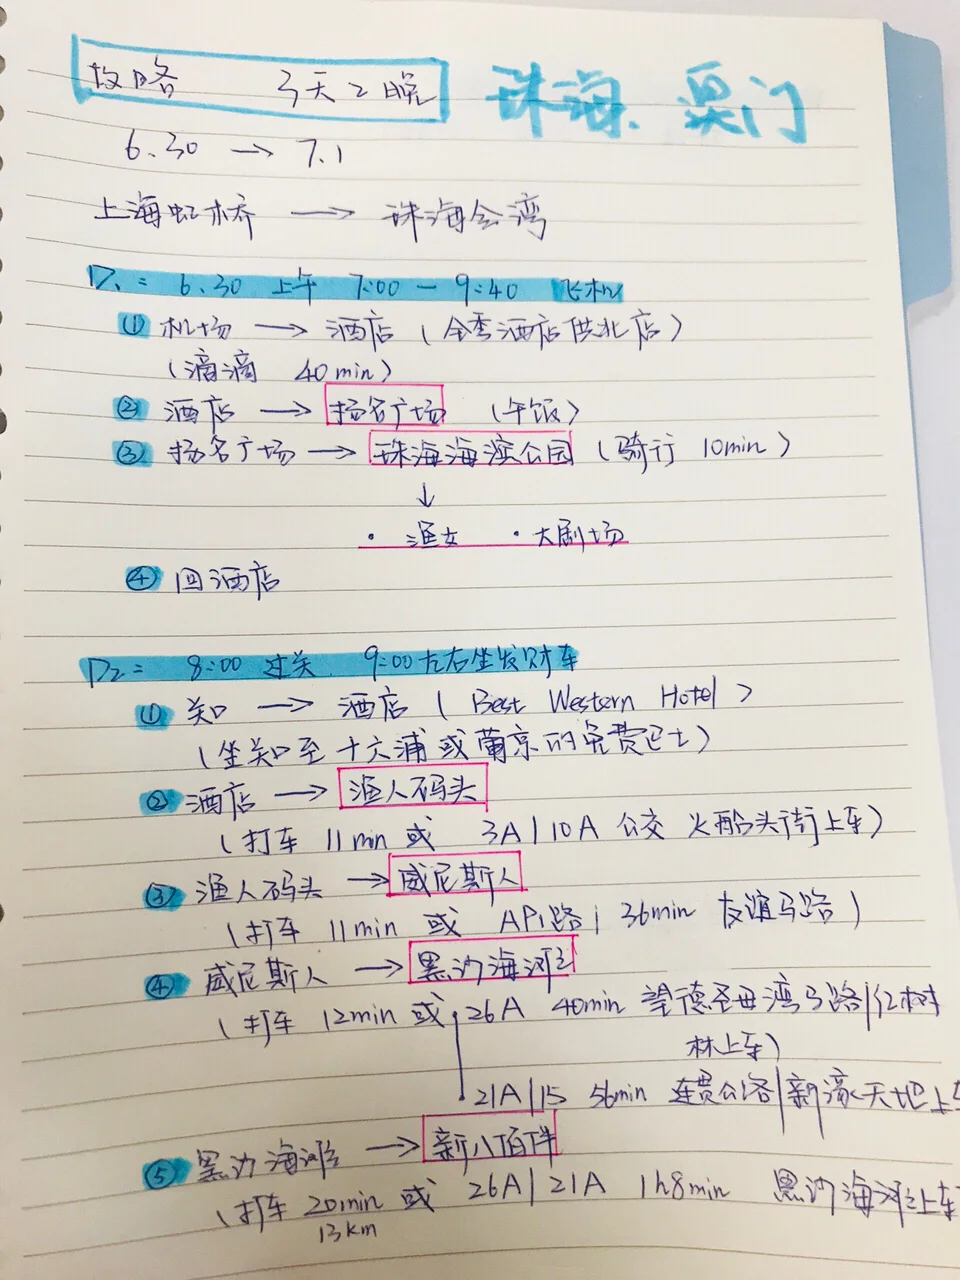 攻略 3天2晚 珠海、澳门
6.30 → 7.1
上海虹桥 → 珠海金湾
D1: 6.30 上午 7:00 — 9:40 飞机
① 机场 → 酒店（全季酒店拱北店）
（滴滴 40min）
② 酒店 → 扬名广场 （午饭）
③ 扬名广场 → 珠海海滨公园（骑行 10min）
↓
· 渔女 · 大剧场
④ 回酒店
D2: 8:00 过关 9:00左右坐发财车
① 关口 → 酒店（Best Western Hotel）
（坐关口至十六浦或葡京的免费巴士）
② 酒店 → 渔人码头
（打车 11min 或 3A|10A 公交 火船头街上车）
③ 渔人码头 → 威尼斯人
（打车 11min 或 AP1路| 36min 友谊马路）
④ 威尼斯人 → 黑沙海滩
（打车 12min 或 26A 40min 望德圣母湾马路|红树
林上车）
21A|15 56min 连贯公路|新濠天地上车
⑤ 黑沙海滩 → 新八佰伴
（打车 20min 或 26A|21A 1h8min 黑沙海滩上车
13km